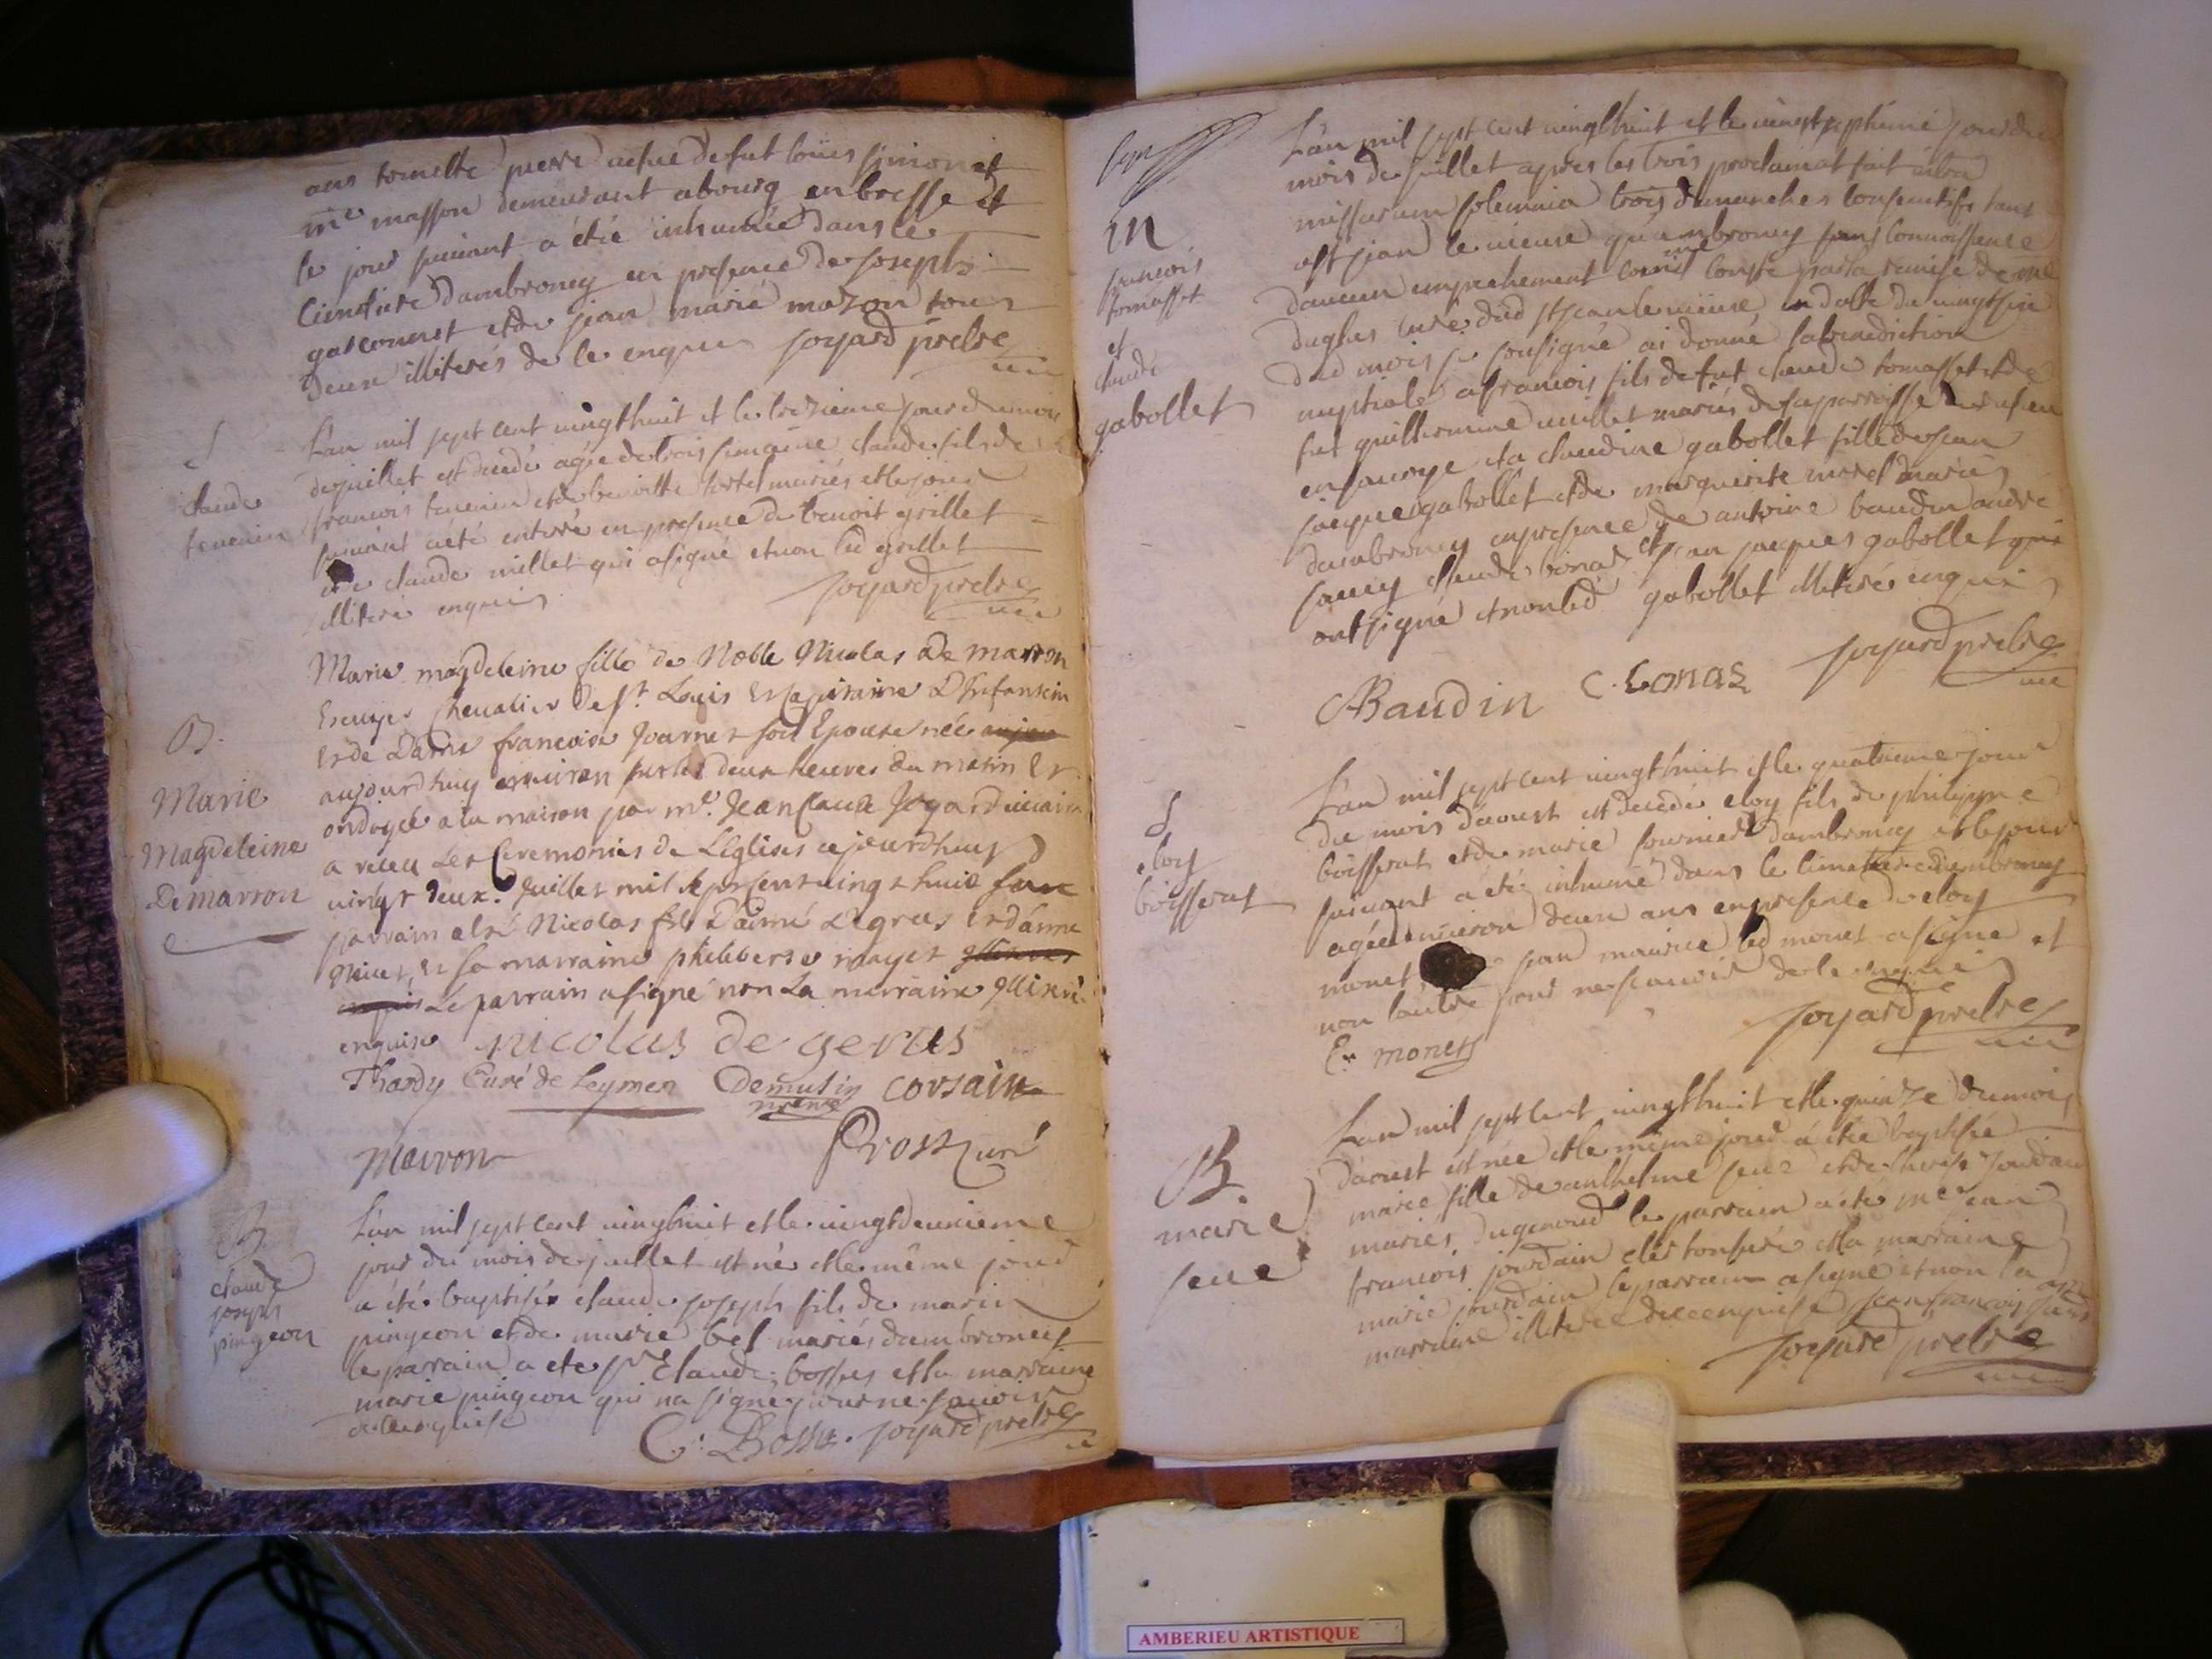 ans tomette pierre vefue de fut louis simonet
me masson demeurant a bourg en bresse et
le jour suivant a été inhumée dans le
cimetiere dambronay en presence de joseph
gasconnet et de jean marie mazon tous
deux illiterés de ce enquis joyard prebre
vic
S
claude
tenenin
Lan mil sept cent vingthuit et le treizieme jour du mois
de juillet est decedé agée de trois semaine claude fils de
francois tenenin et de benoitte tertel mariés et le jour
suivant a été enterré en presence de benoit grillet
et de claude millet qui a signé et non led grillet
illiteré enquis joyard prebre
vic
B.
Marie
Magdeleine
De marron
Marie magdeleine fille de Noble Nicolas De marron
Escuyer Chevalier de St. Louis Et Capitaine D Infanterie
Et de Dame francoise Journet son Epouse née
aujourdhuy environ sur les deux heures du matin Et
ondoyée a la maison par mre. Jean Claude Joyard vicaire
a receu Les Ceremonies de L'Eglises cejourdhuy
vingt deux. Juillet mil sept cent vingt huit son
parrain a été Nicolas fils D'aimé Degreus Et d'anne
Et sa marraine philiberte mayet
Le parrain a signé non La marraine Illiterée
enquise nicolas de gerus
Thardy Curé de Leymen Demusin corsain
marron Prost curé
B
claude
joseph
pingeon
Lan mil sept cent vingthuit et le vingtdeuxieme
jour du mois de juillet est né et le même jour
a été baptisé claude joseph fils de marin
pingeon et de marie bel mariés dambronay
le parrain a ete sr Claude bossus et la marraine
marie pingeon qui na signé pour ne scavoir
de ce enquise C. Bossu. joyard prebre
vic
m
francois
tomasset
et
claude
gabollet
Lan mil sept cent vingthuit et le vingtseptieme jour du
mois de juillet apres les trois proclamat fait intra
missarum solemnia trois dimanches consecutifs tant
a st jean le vieux qu'a ambronay sans connoissance
daucun empechement comme conste par la remise de mre
dughes curé dud st jean le vieux, en datte du vingtsix
dud mois je sousigné ai donné la benediction
nuptiale a francois fils de fut claude tomasset et de
fut guillermine millet mariés de la parroisse
en savoye et a claudine gabollet fille de jean
jacque gabollet et de marguerite morel mariés
dambronay en presence de antoine baudin andre
saucy claude bonaz et jean jacques gabollet qui
ont signé et non led gabollet illiteré enquis
joyard prebre
vic
A Baudin C. bonaz
S
eloy
boisserat
Lan mil sept cent vingthuit et le quatrieme jour
du mois daoust est decedé eloy fils de philippe
boisserat et de marie fournier dambronay et le jour
suivant a été inhumé dans le cimetiere dambronay
agée environ deux ans en presence de eloy
monet jean maurice led monet a signé et
non lautre pour ne scavoir de ce enquis
E. monet joyard prebre
vic
B.
marie
seve
Lan mil sept cent vingthuit et le quinze du mois
daoust est née et le même jour a été baptisée
marie fille de anthelme seve et de therese jourdain
mariés dugenoud le parrain a été mre jean
francois jourdain clerc tonsuré et la marraine
marie jourdain le parrain a signé et non la
marraine illiterée de ce enquise jean francois jourdain
joyard prebre
vic
AMBERIEU ARTISTIQUE